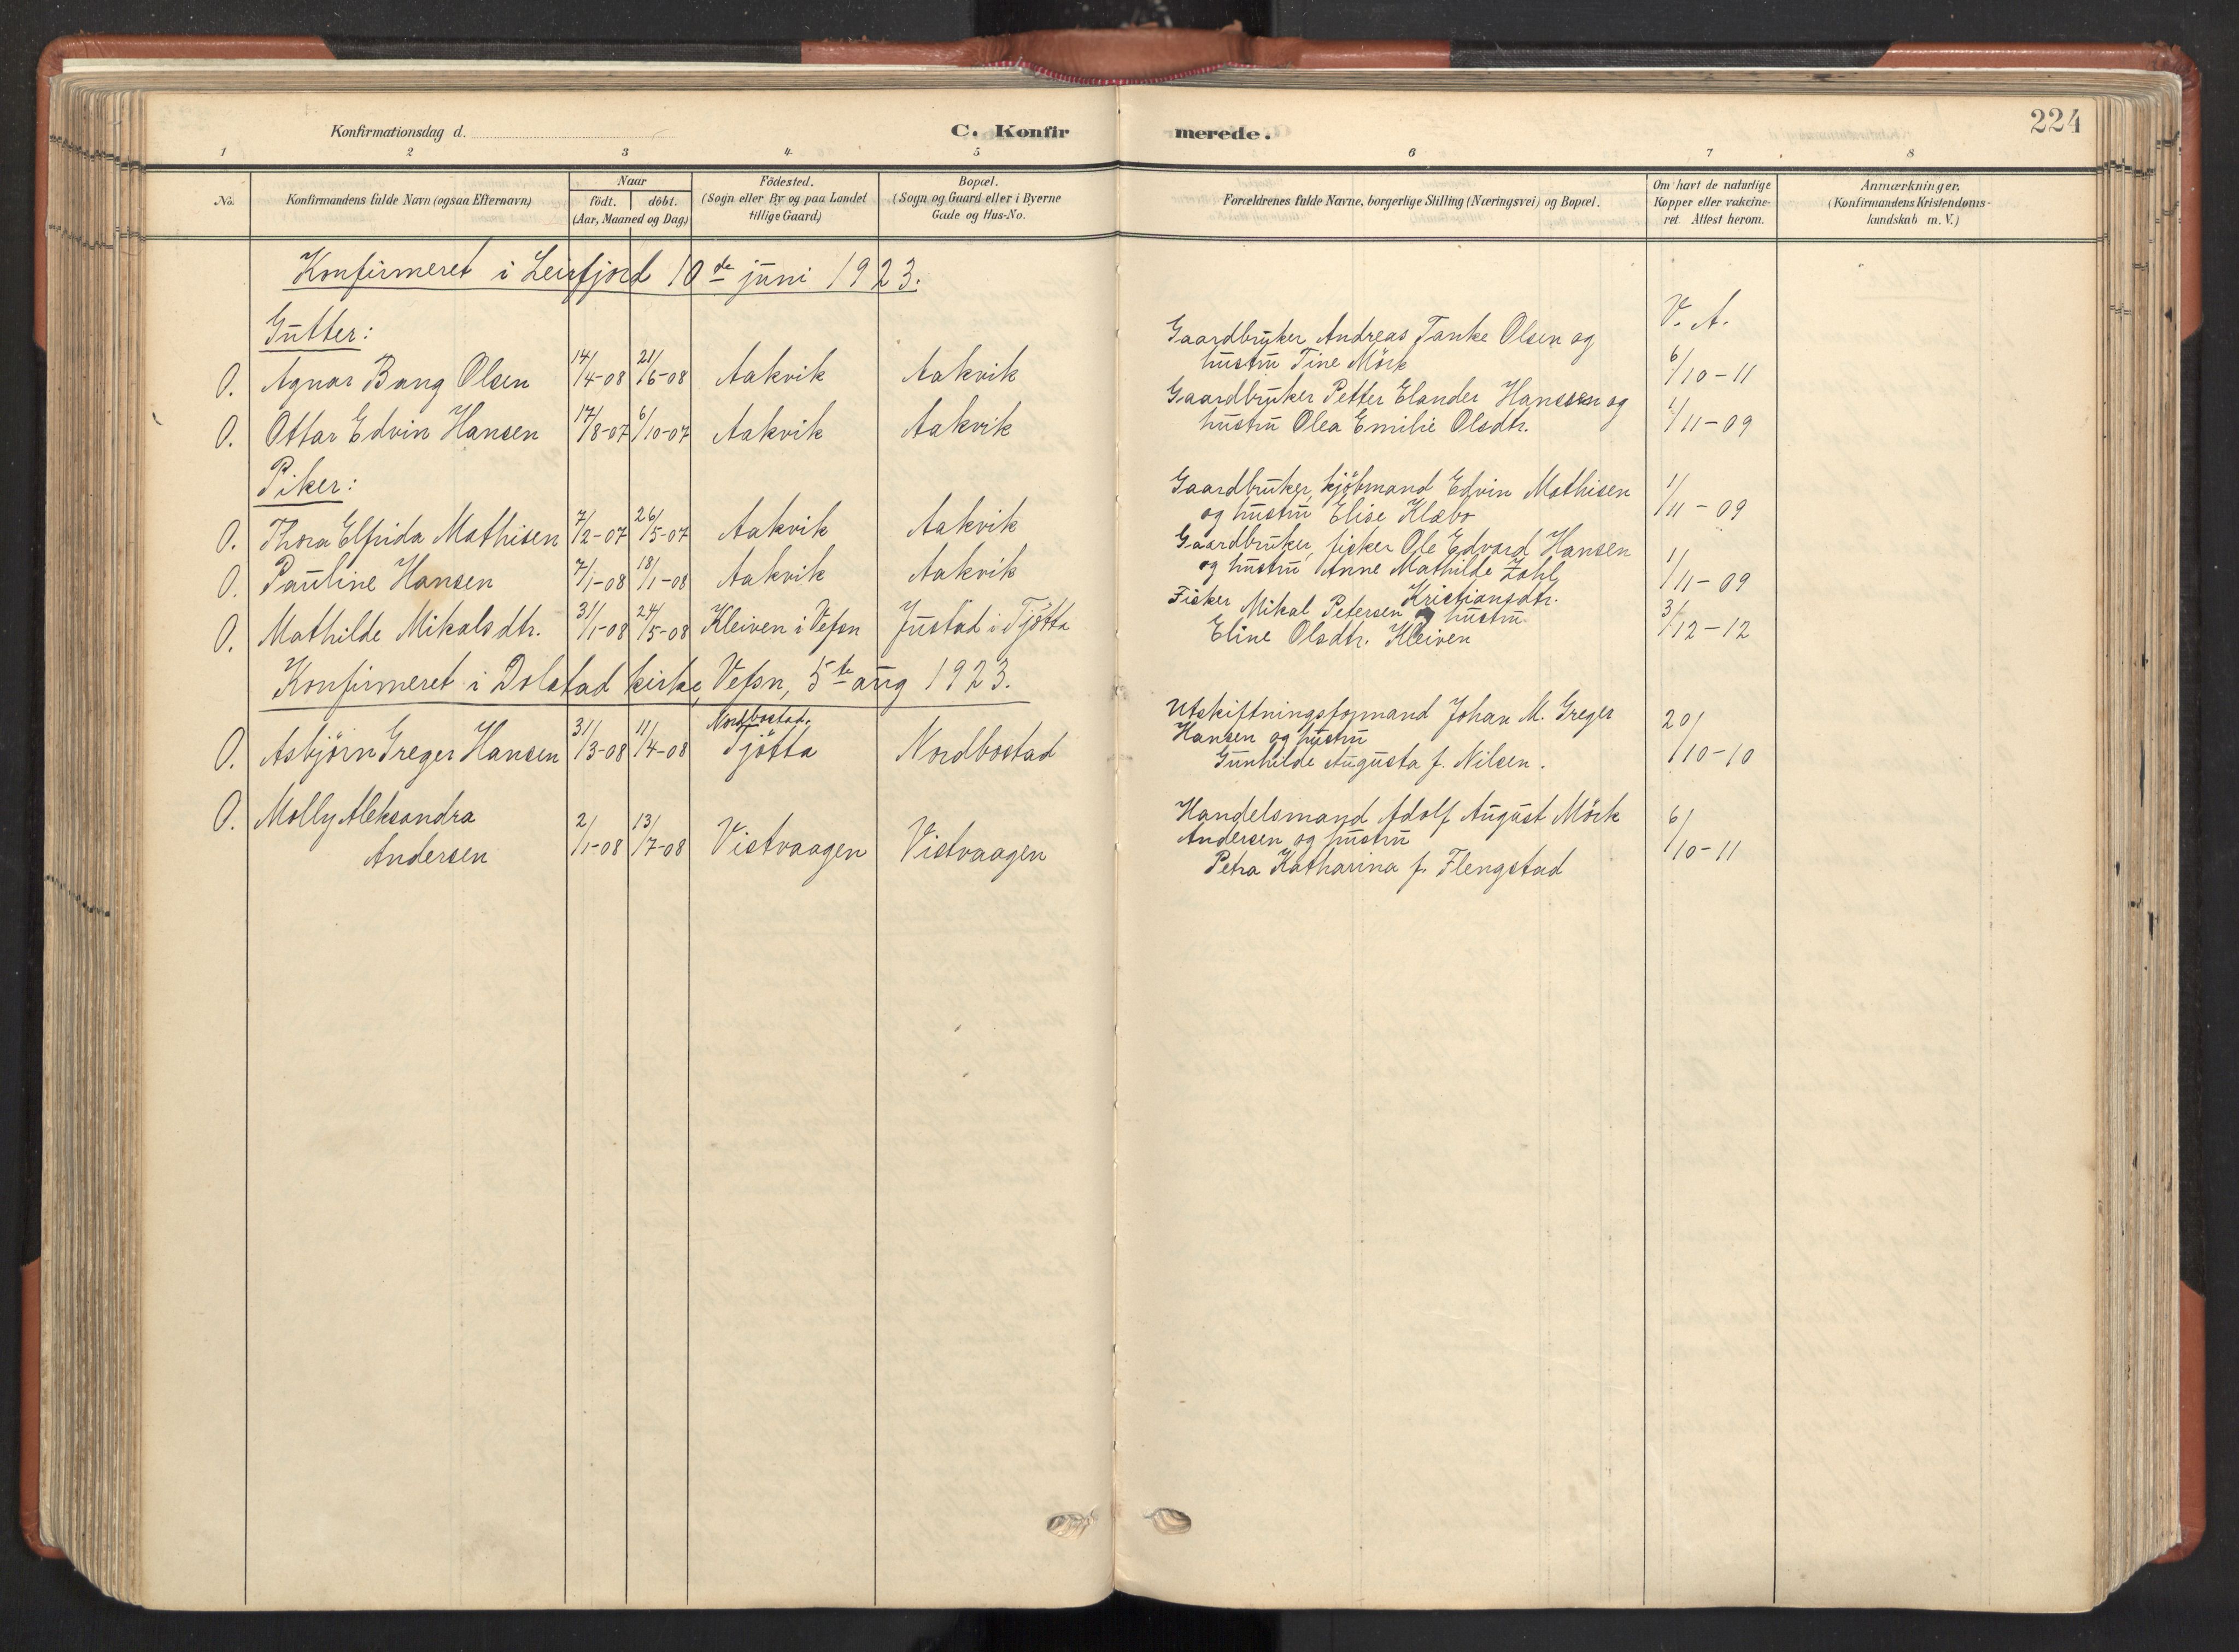 224
Konfirmationsdag d.
C. Konfirmerede.
1 2 3 4 5 6 7 8
No.
Konfirmandens fulde Navn (ogsaa Efternavn)
Naar
födt. döbt.
(Aar, Maaned og Dag)
Födested.
(Sogn eller By og paa Landet
tillige Gaard)
Bopæl.
(Sogn og Gaard eller i Byerne
Gade og Hus-No.
Forældrenes fulde Navne, borgerlige Stilling (Næringsvei) og Bopæl.
Om havt de naturlige
Kopper eller vakcine-
ret Attest herom.
Anmærkninger.
(Konfirmandens Kristendoms-
kundskab m. V.)
Konfirmeret i Leirfjord 10de juni 1923.
V. A.
Gutter:
O. Agnar Bang Olsen 14/4-08 21/6-08 Aakvik Aakvik
Gaardbruker Andreas Tanke Olsen og
hustru Tine Mörk 6/10-11
O. Ottar Edvin Hansen 17/8-07 6/10-07 Aakvik Aakvik
Gaardbruker Petter Elander Hanssen og
hustru Olea Emilie Olsdtr. 1/11-09
Piker:
O. Thora Elfrida Mathisen 7/2-07 26/5-07 Aakvik Aakvik
Gaardbruker, kjöbmand Edvin Mathisen
og hustru Elise Klæbo 1/11-09
O. Pauline Hansen 7/1-08 18/1-08 Aakvik Aakvik
Gaardbruker, fisker Ole Edvard Hansen
og hustru Anne Mathilde Zahl
Kristiansdtr. 1/11-09
O. Mathilde Mikalsdtr. 31/1-08 24/5-08 Kleiven i Vefsn Justad i Tjötta
Fisker Mikal Petersen og hustru
Eline Olsdtr. Kleiven 3/12-12
Konfirmeret i Dolstad kirke, Vefsn, 5te aug 1923.
O. Asbjörn Greger Hansen 31/3-08 11/4-08 Nordbostad, Tjötta Nordbostad
Utskiftningsformand Johan M. Greger
Hansen og hustru
Gunhilde Augusta f. Nilsen. 20/10-10
O. Molly Aleksandra
Andersen 2/1-08 13/7-08 Vistvaagen Vistvaagen
Handelsmand Adolf August Mörk
Andersen og hustru
Petra Katharina f. Flengstad 6/10-11